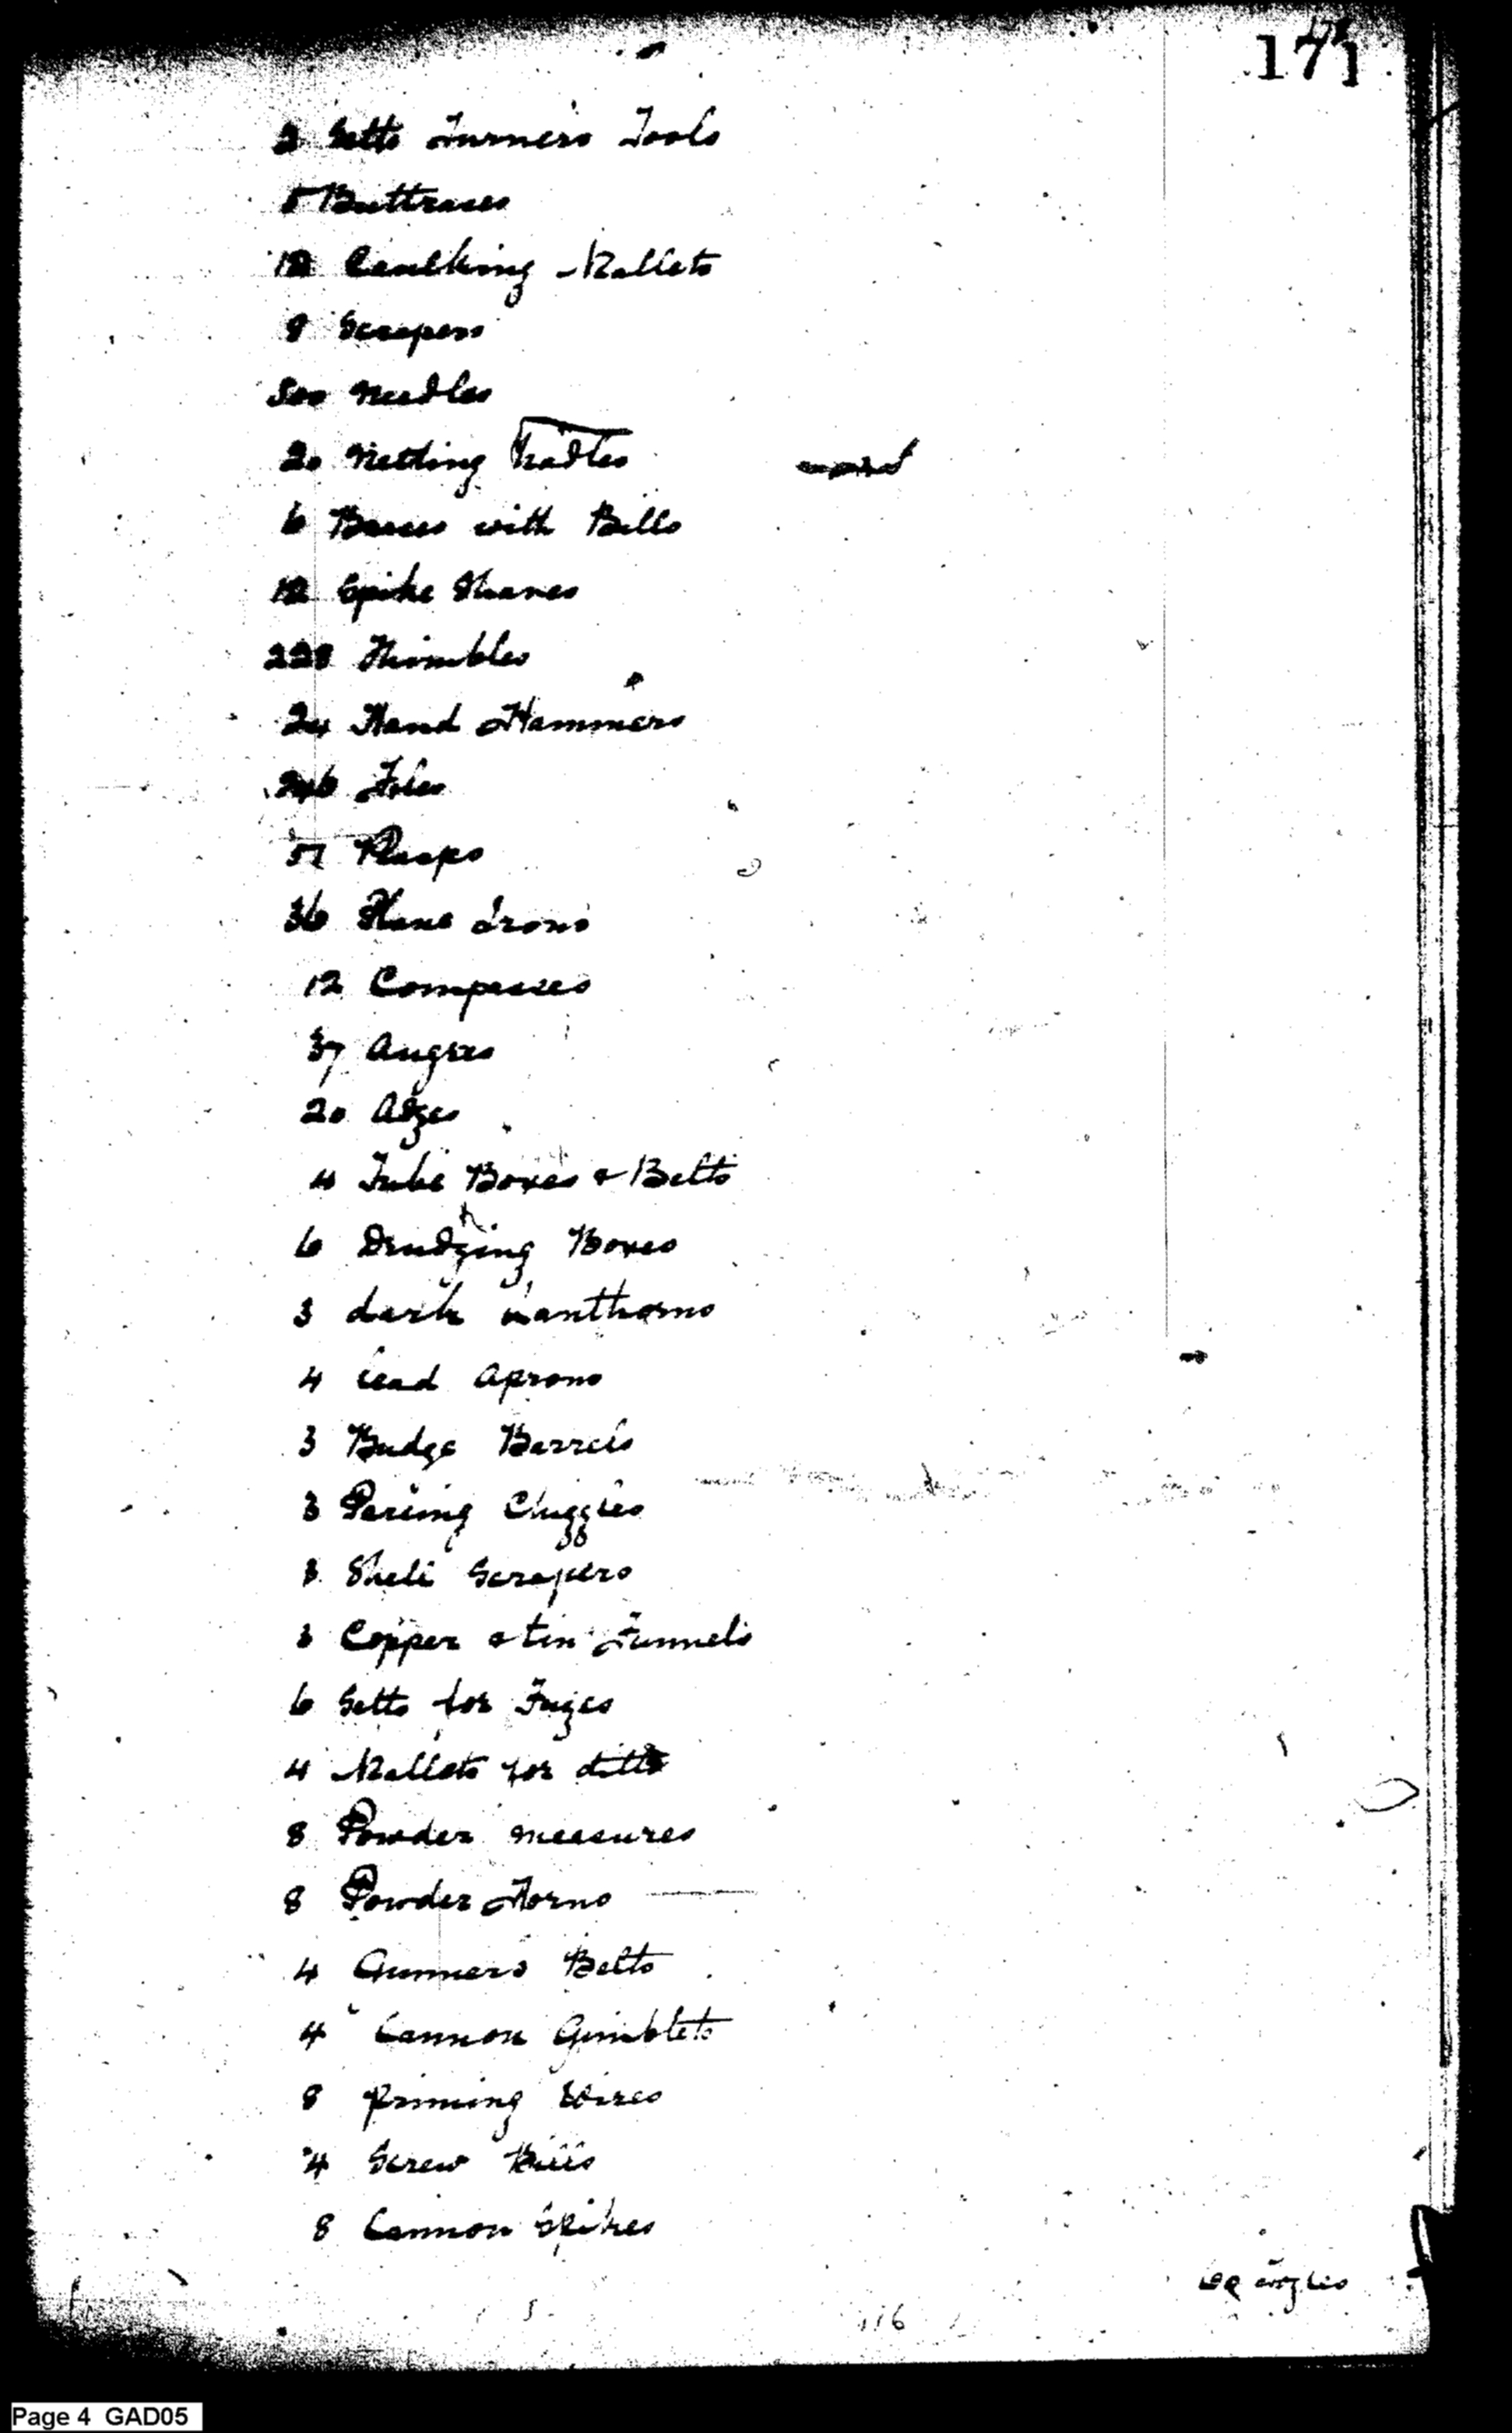 171
2 Setts Turners Tools
5 Buttraces
12 Caulking Mallets
8 Scrapers
500 Needles
20 Netting
6 Braces with Bills
12 Spike Shanes
228 Thimbles
24 Hand Hammers
246 Files
57 Rasps
36 Plane Irons
12 Compasses
37 Augres
20 Adzes
4 Tube Boxes & Belts
6 Drudging Boxes
3 dark Lanthorns
4 Lead Aprons
3 Budge Barrels
3 Paring Chizzles
3 Shell Scrapers
3 Copper & tin Funnels
6 Setts for Fuzes
4 Mallets for ditto
8 Powder measures
8 Powder Horns
4 Gunners Belts
4 Cannon Gimblets
8 priming Wires
4 Screw
8 Cannon Spikes
116
Page 4 GAD05